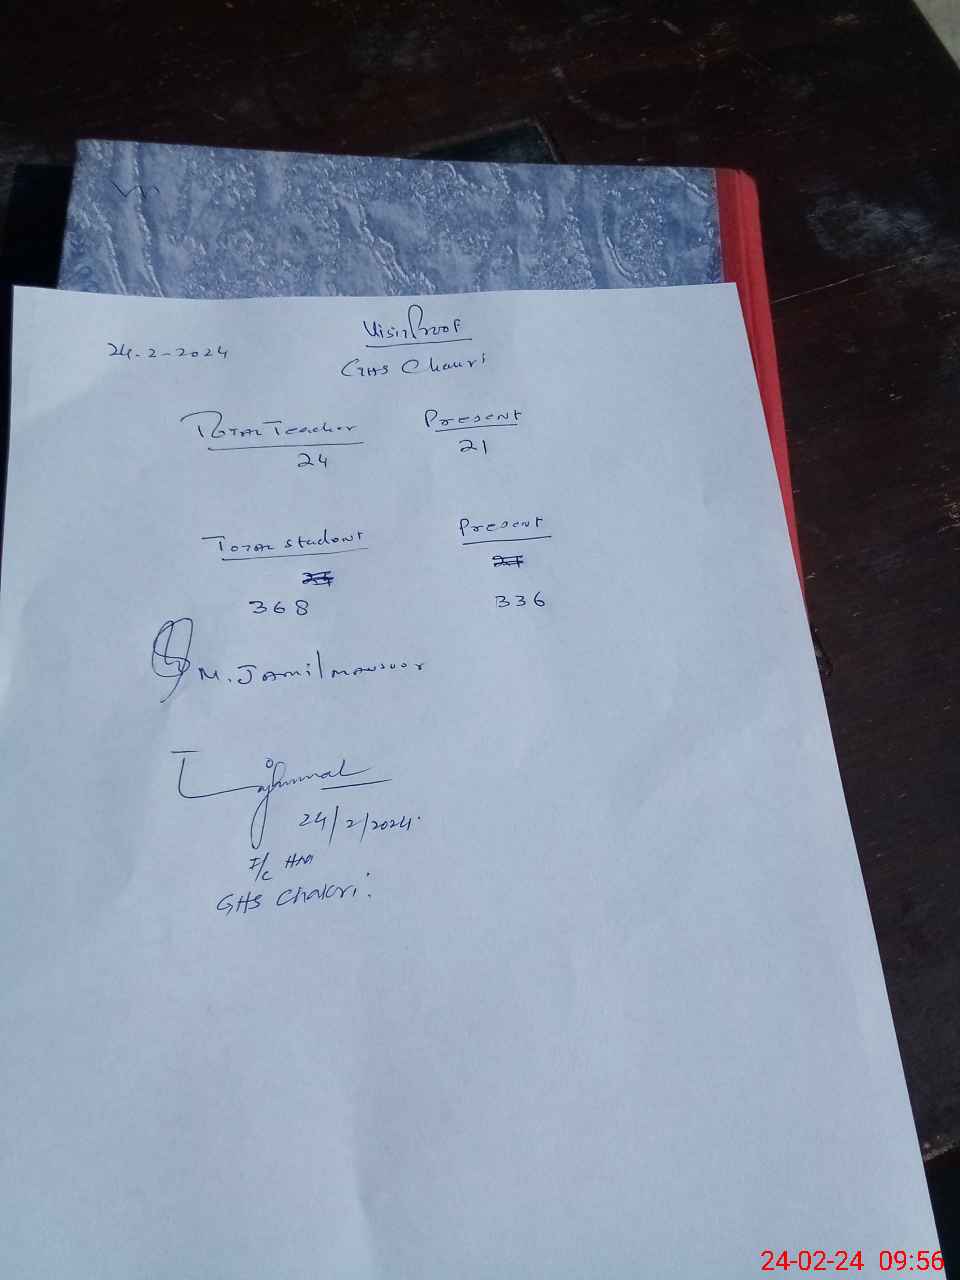 24.2-2024
Visit Proof
GHS Chakri
Total Teacher Present
24 21
Total student Present
368 336
M. Jamil mansoor
24/2/2024.
I/c HM
GHS Chakri.
24-02-24 09:56